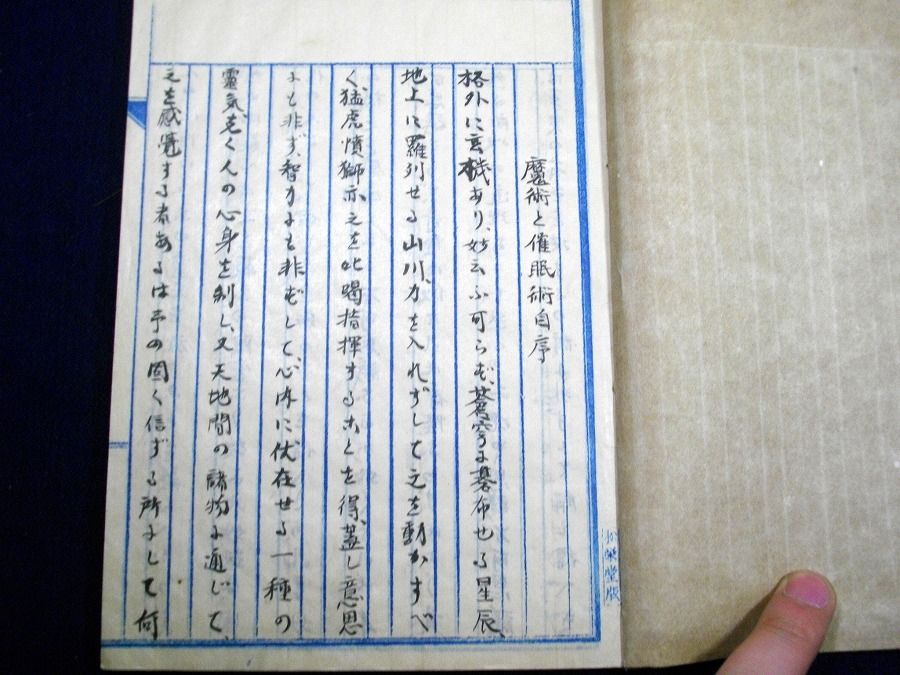 魔術と催眠術自序
格外に玄機あり、妙云ふ可らず、蒼穹に碁布せる星辰、
地上に羅列せる山川、力を入れずして之を動かすべ
く、猛虎憤獅亦之を叱喝指揮することを得、蓋し意思
にも非ず、智力にも非ずして、心内に伏在せる一種の
靈気、よく人の心身を制し、又天地間の諸物に通じて、
之を感覺する者あるは予の固く信ずる所にして何
榮堂版